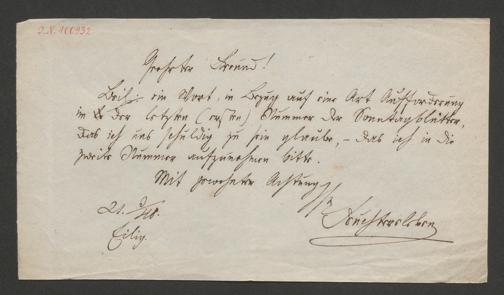 I.N. 100932
Geehrter Freund!
Beil: ein Wort, in Bezug auf eine Art Aufforderung
in der letzten (ersten) Nummer der Sonntagsblätter,
das ich uns schuldig zu sein glaube, – das ich in die
zweite Nummer aufzunehmen bitte.
Mit gewohnter Achtung
Feuchtersleben
Eilig.